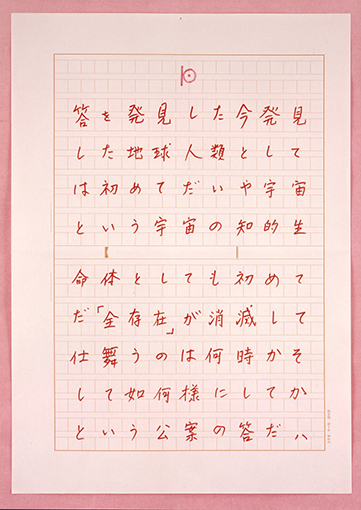 答を発見した今発見
した地球人類として
は初めてだいや宇宙
という宇宙の知的生
命体としても初めて
だ「全存在」が消滅して
仕舞うのは何時かそ
して如何様にしてか
という公案の答だ八